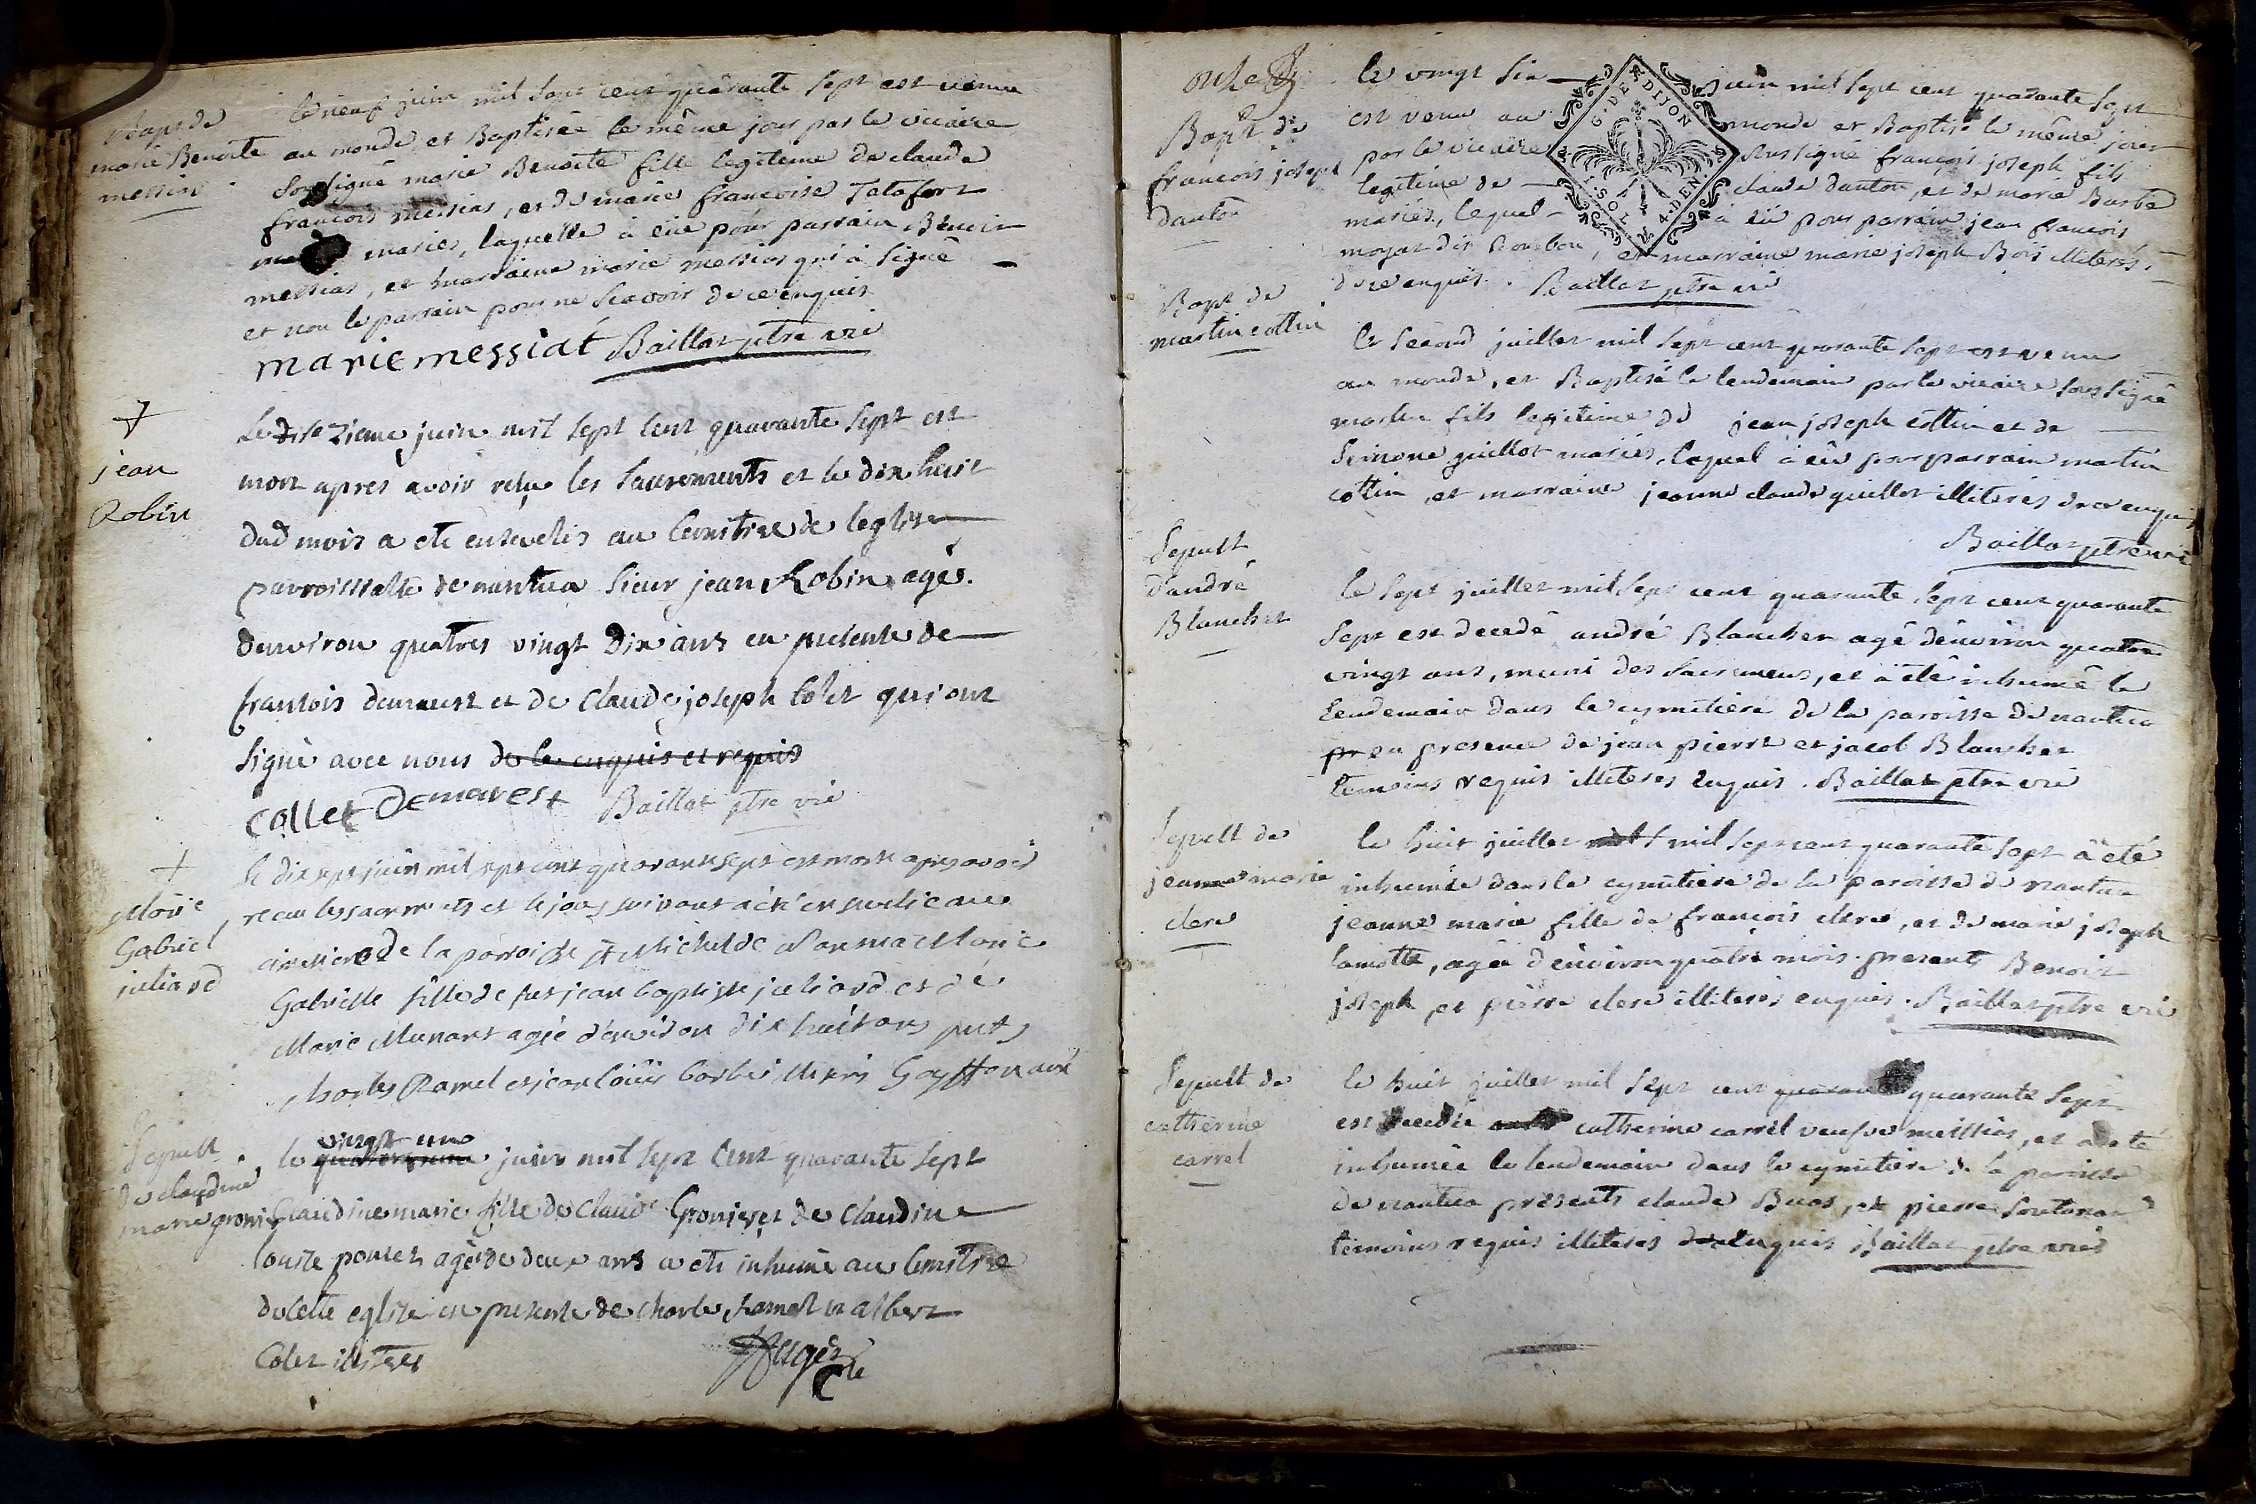 Bapt de
marie Benoite
messias
le neuf juin mil sept cent quarante sept est venue
au monde, et Baptisée le même jour par le vicaire
soussigné marie Benoite fille legitime de claude
francois messias, et de marie francoise Tatafort
mariés, laquelle à eüe pour parrain Benoit
messias, et marraine marie messias qui à signé
et non le parrain pour ne scavoir de ce enquis
marie messiat Baillat ptre vic
+
jean
Robin
Le dise zieme juin mil sept cent quarante sept est
mort apres avoir reçu les sacrements et le dix huit
dud mois a ete enseveli au Cemitiere de leglise
parroissialle de nantua Sieur jean Robin agés
denviron quatres vingt Dix ans en presente de
francois demarest et de Claude joseph Colet qui ont
signè avec nous de ce enquis et requis
Collet Demarest Baillat ptre vic
+
Marie
Gabriel
juliard
le dix sept juin mil sept cent quarante sept est morte apres avoir
recu les sacrements et le jour suivant a été ensevelie au
cimetiere de la parroisse St Michel de Nantua Marie
Gabrielle fille de fut jean baptiste juliard et de
Marie Munaret agée d'environ dix huit ans puts
charles Ramel et jean loüis
Sepult
de claudine
marie groni
vingt un
le juin mil sept Cent quarante sept
Claudine marie fille de Claude Gronier et de Claudine
Louise poncet agée de deux ans a ete inhumé au Cemitiere
de cette eglise en presente de charle hamel et albert
Colet illiteres
Bapt de
francois joseph
danton
le vingt six juin mil sept cent quarante sept
est venu au monde et Baptisé le même jour
par le vicaire soussigné françois joseph fils
legitime de claude danton, et de marie Barbe
mariés, lequel à eü pour parrain jean francois
moyat dit Bourbon, et marraine marie joseph Bois illiterés
de ce enquis. Baillat ptre vic
G·DE·DIJON
·SOL·4·DEN
Bapt de
martin cottin
le second juillet mil sept cent quarante sept est venu
au monde, et Baptisé le lendemain par le vicaire soussigné
martin fils legitime de jean joseph cottin et de
Simone guillot mariés, lequel à eü pour parrain martin
cottin, et marraine jeanne claude guillot illiterés de ce enquis
Baillat ptre vic
Sepult
d'andré
Blanchet
le sept juillet mil sept cent quarante sept cent quarante
sept est decedé andré Blanchet agé d'environ quatre
vingt ans, muni des sacremens, et à été inhumé le
lendemain dans le cymitiere de la paroisse de nantua
pr en presence de jean pierre et jacob Blanchet
temoins requis illiteres enquis. Baillat ptre vic
Sepult de
jeanne marie
clerc
le huit juillet mil sept cent quarante sept à été
inhumée dans le cymitiere de la paroisse de nantua
jeanne marie fille de francois clerc, et de marie joseph
lamotte, agée d'environ quatre mois. presents Benoit
joseph, et pierre clerc illiterés enquis. Baillat ptre vic
Sepult de
catherine
carrel
le huit juillet mil sept cent quarante quarante sept
est decedée catherine carrel veufve messias, et à eté
inhumée le lendemain dans le cymitiere de la paroisse
de nantua presents claude Buos, et pierre
temoins requis illiterés de enquis Baillat ptre vic